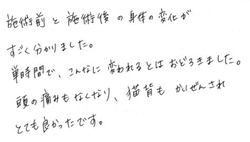 施術前と施術後の身体の変化が
すごく分かりました。
単時間で、こんなに変われるとはおどろきました。
頭の痛みもなくなり、猫背もかいぜんされ
とても良かったです。